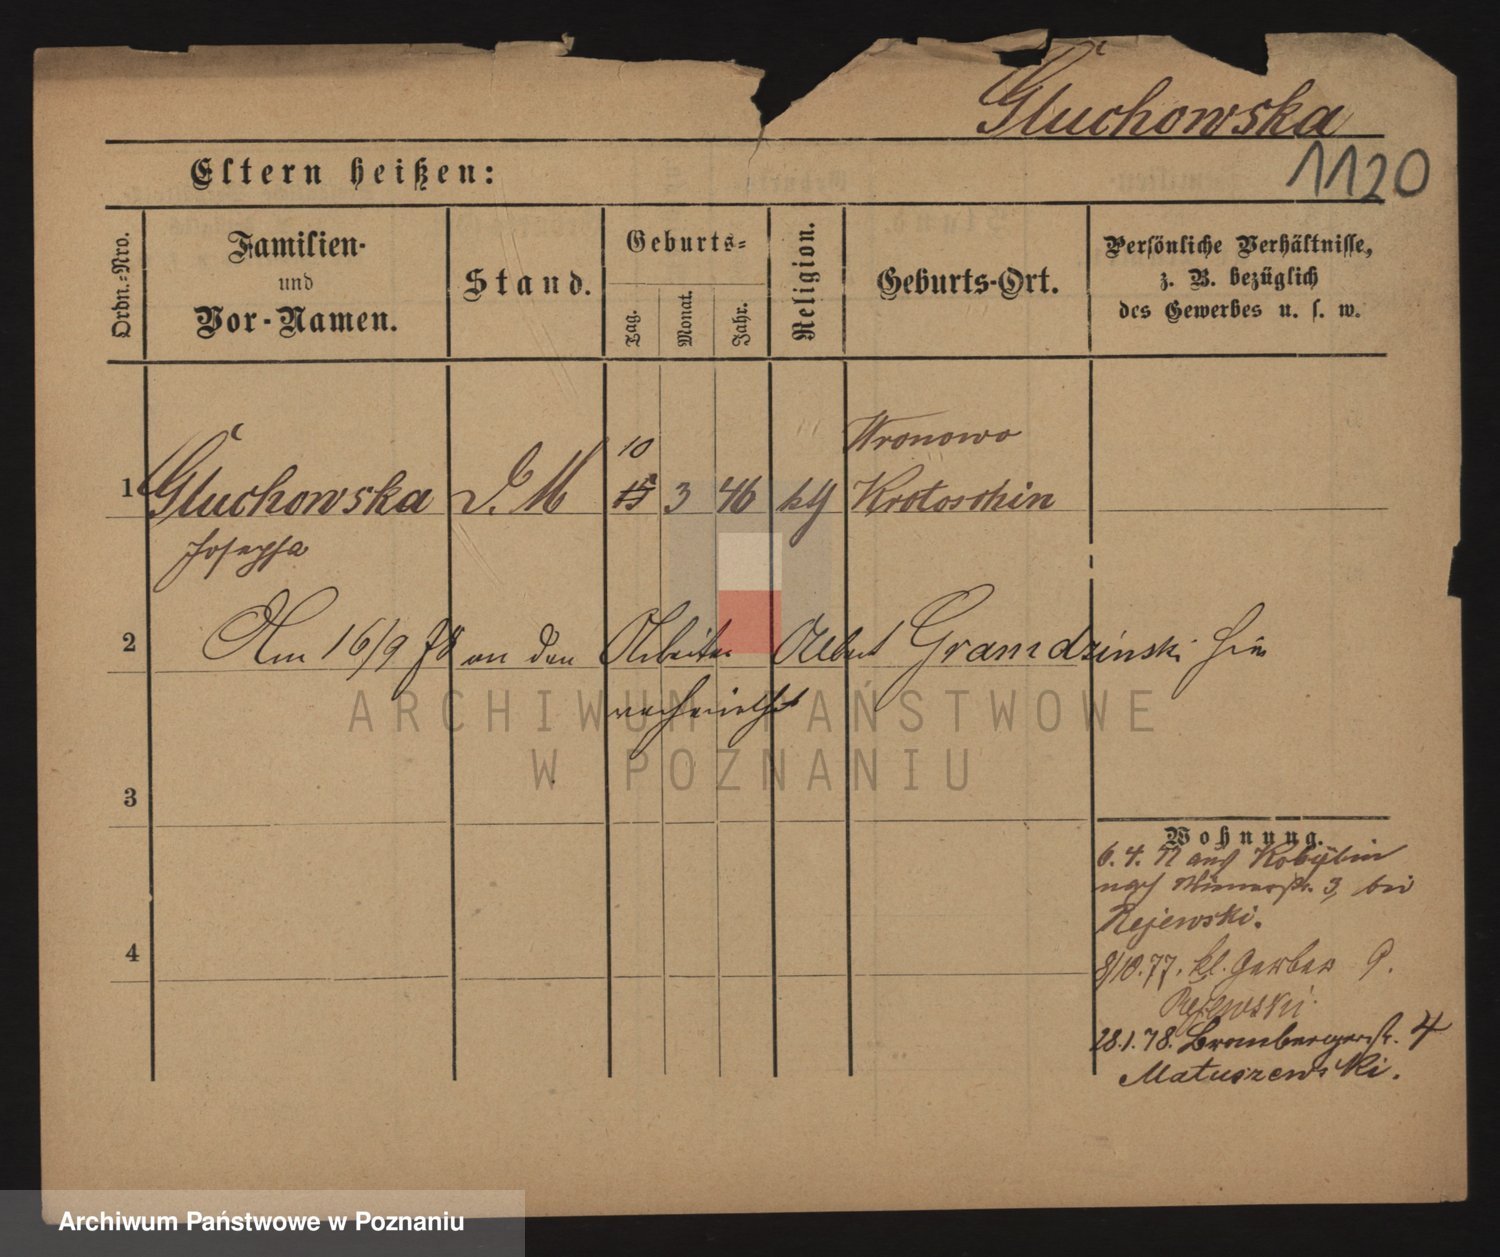 Głuchowska
1120
Eltern heißen:
Ordn.-Nro.
Familien-
und
Vor-Namen.
Stand.
Geburts-
Tag.
Monat.
Jahr.
Religion.
Geburts-Ort.
Persönliche Verhältnisse,
z. B. bezüglich
des Gewerbes u. s. w.
10 Wronowo
1 Głuchowska D. M 15 3 46 kth Krotoschin
Josepha
2 Am 16/9 78 an den Arbeiter Albert Gramdzinski hier
verheirathet
ARCHIWUM PAŃSTWOWE
W POZNANIU
3
4
Wohnung.
6. 4. 77 aus Kobylin
nach 3, bei
Rejewski.
8/10.77. kl. Gerber 9.
Rejewski
28.1.78. Brombergerstr. 4
Matuszewski.
Archiwum Państwowe w Poznaniu